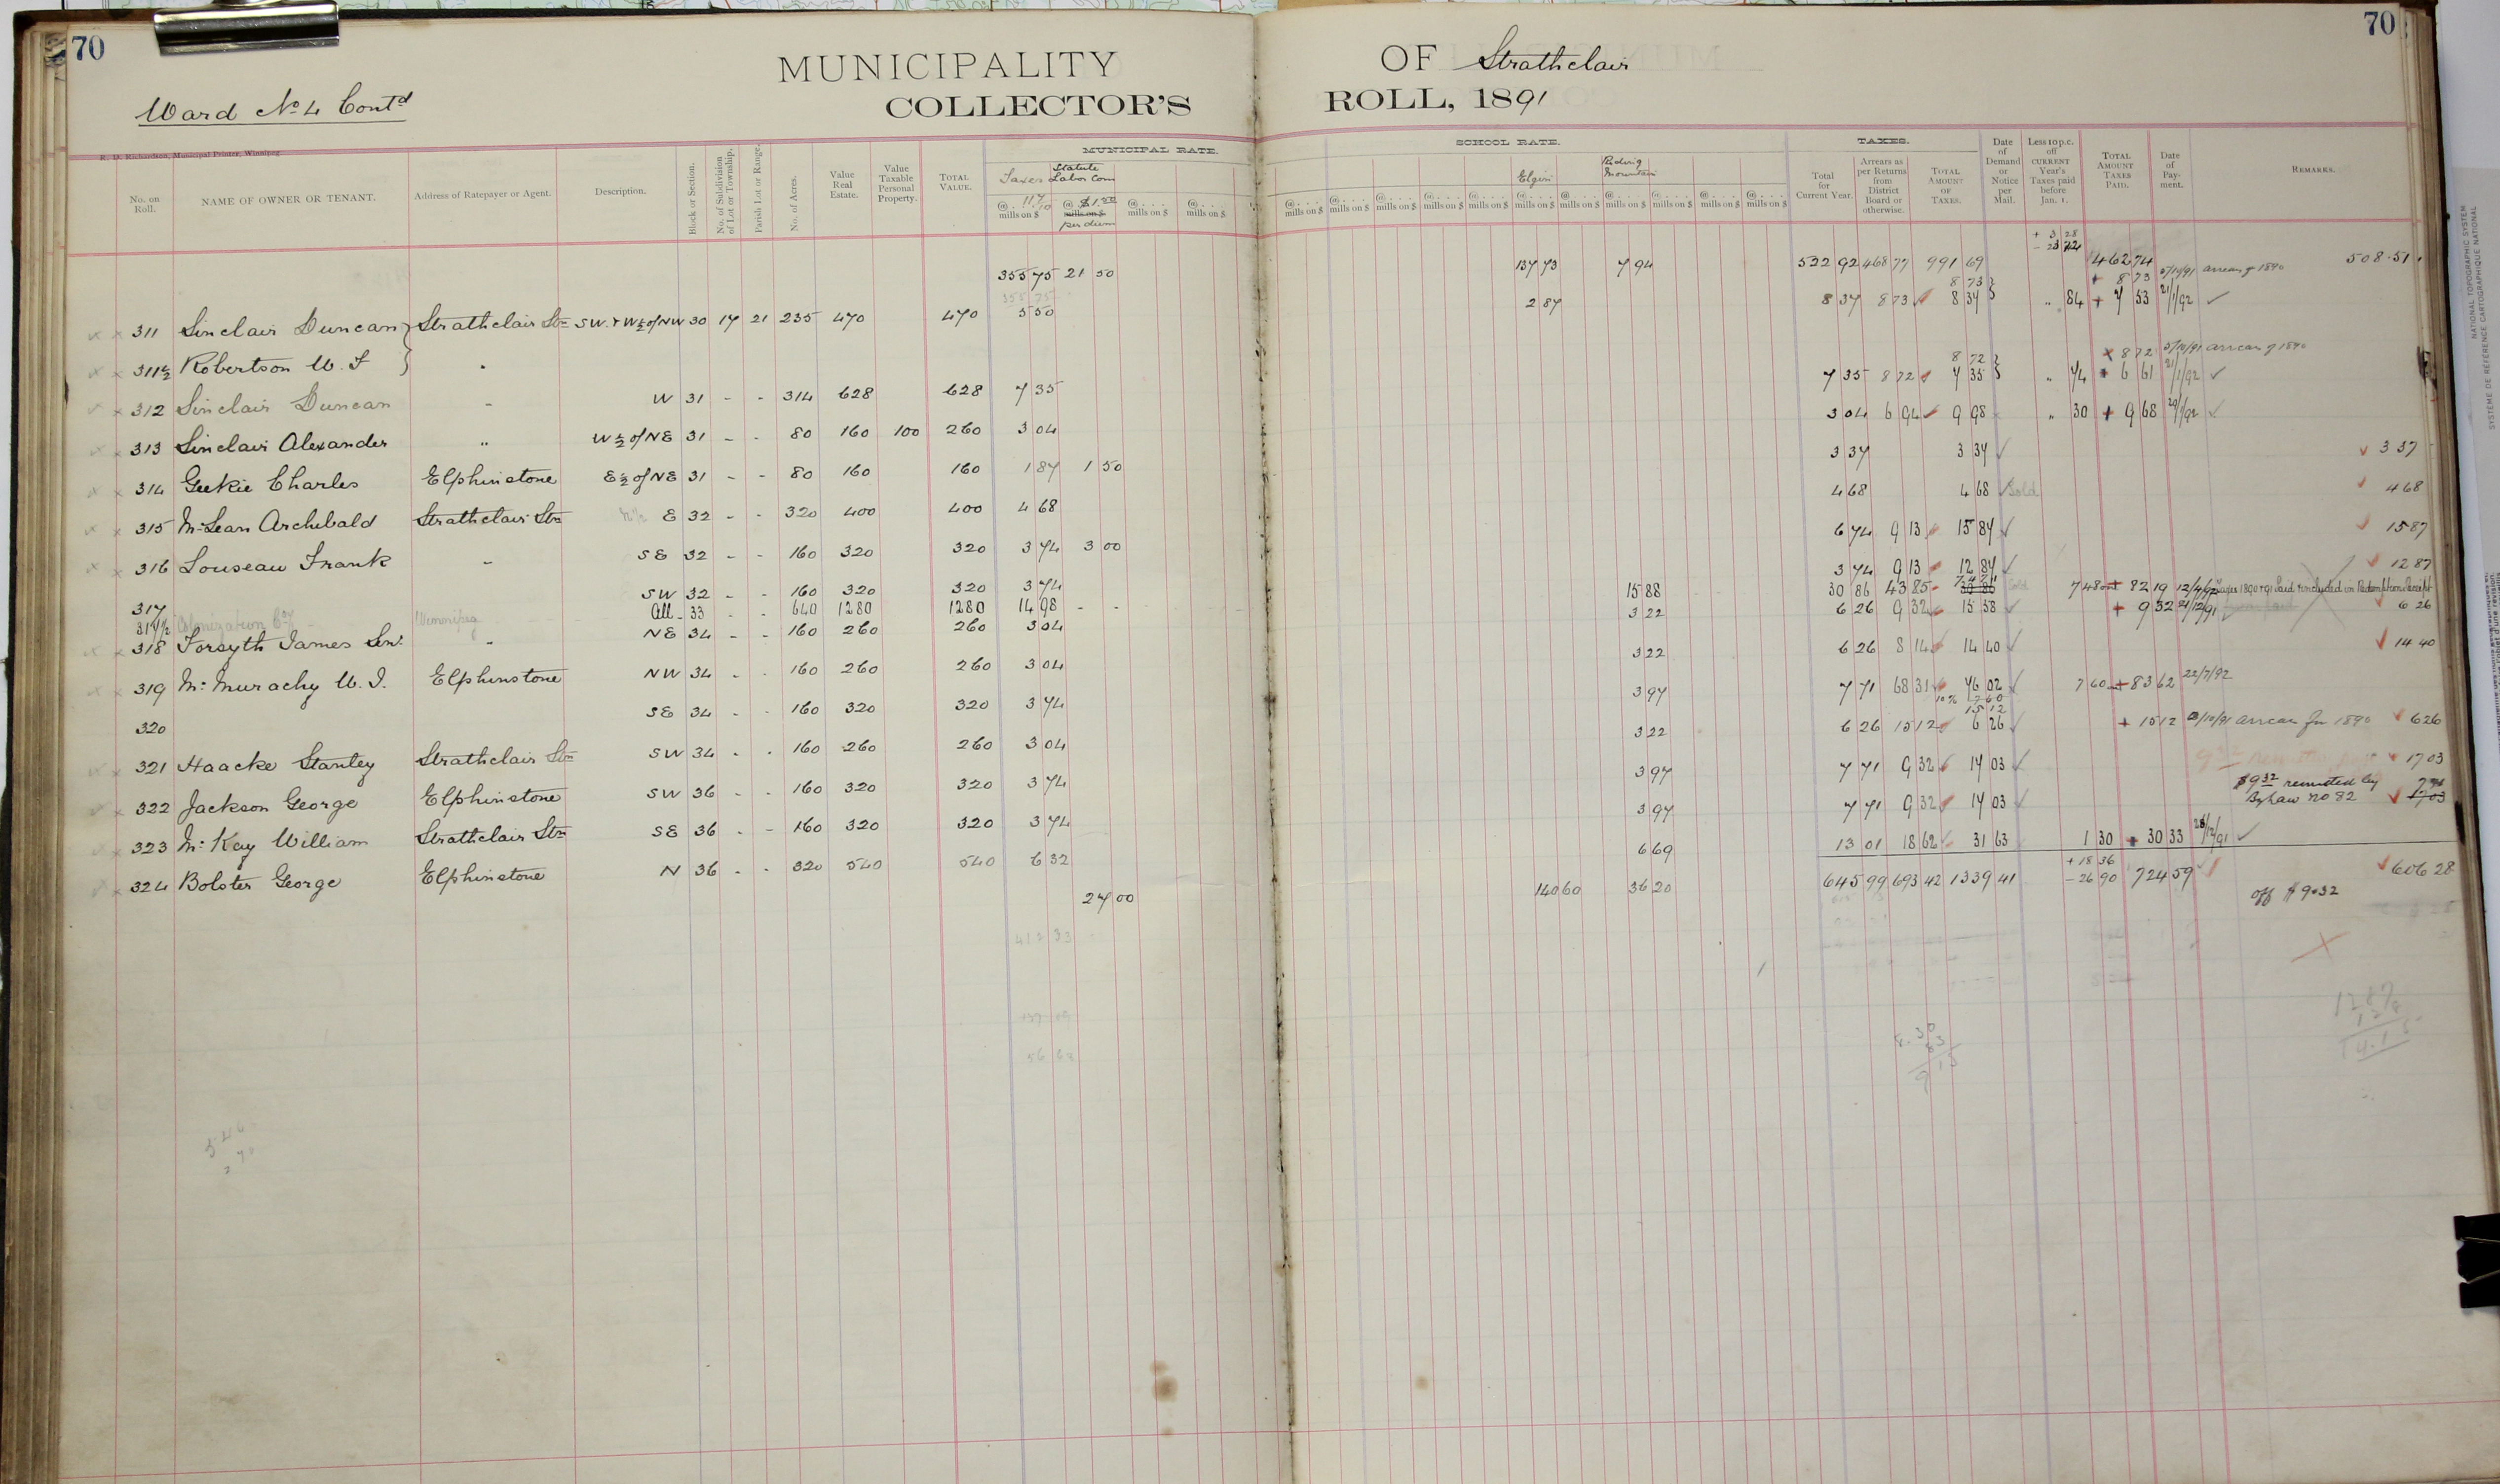 70
70
MUNICIPALITY OF Strathclair
Ward No 4 Contd
COLLECTOR'S ROLL, 1891
R. D. Richardson, Municipal Printer, Winnipeg.
MUNICIPAL RATE. SCHOOL RATE. TAXES.
No. on Roll. NAME OF OWNER OR TENANT. Address of Ratepayer or Agent. Description. Block or Section. No. of Subdivision of Lot or Township. Parish Lot or Range. No. of Acres. Value Real Estate. Value Taxable Personal Property. TOTAL VALUE. Taxes 11 7/10 mills on $ Statute Labor Com @ $1.50 mills on $ per diem @ . . . . mills on $ @ . . . . mills on $ Elgin Riding Mountain Total for Current Year. Arrears as per Returns from District Board or otherwise. TOTAL AMOUNT OF TAXES. Date of Demand or Notice per Mail. Less 10 p.c. off CURRENT Year's Taxes paid before Jan. 1. TOTAL AMOUNT TAXES PAID. Date of Payment. REMARKS.
355 75 21 50 137 73 7 94 532 92 468 77 991 69 + 3 28 462 74 508.51
8 73 + 8 73 5/10/91 arrears of 1890
311 Sinclair Duncan Strathclair Stn SW. & W½ of NW 30 17 21 235 470 470 5 50 2 87 8 37 8 73 8 37 " 84 + 7 53 21/1/92
311½ Robertson W. F "
8 72 + 8 72 5/10/91 arrears of 1890
312 Sinclair Duncan " W 31 - - 314 628 628 7 35 7 35 8 72 7 35 " 74 + 6 61 21/1/92
313 Sinclair Alexander " W½ of NE 31 - - 80 160 100 260 3 04 3 04 6 94 9 98 " 30 + 9 68 20/1/92
314 Geekie Charles Elphinstone E½ of NE 31 - - 80 160 160 1 87 1 50 3 37 3 37 3 37
315 McLean Archibald Strathclair Stn E 32 - - 320 400 400 4 68 4 68 4 68 Sold 4 68
316 Louseau Frank " SE 32 - - 160 320 320 3 74 3 00 6 74 9 13 15 87 15 87
317 SW 32 - - 160 320 320 3 74 3 74 9 13 12 87 12 87
317½ Colonization Coy Winnipeg All 33 - - 640 1280 1280 14 98 - - 15 88 30 86 43 85 74 71 Sold 7 48 + 82 19 12/4/92 Taxes 1890 & 91 Paid & included in Redemption Receipt
318 Forsyth James Senr " NE 34 - - 160 260 260 3 04 3 22 6 26 9 32 15 58 + 9 32 21/12/91 6 26
319 McMurachy W. J. Elphinstone NW 34 - - 160 260 260 3 04 3 22 6 26 8 14 14 40 14 40
320 SE 34 - - 160 320 320 3 74 3 97 7 71 68 31 76 02 7 60 + 83 62 22/7/92
10% 7 60
15 12
321 Haacke Stanley Strathclair Stn SW 34 - - 160 260 260 3 04 3 22 6 26 15 12 6 26 + 15 12 3/10/91 arrears for 1890 6 26
322 Jackson George Elphinstone SW 36 - - 160 320 320 3 74 3 97 7 71 9 32 17 03 17 03
323 McKay William Strathclair Stn SE 36 - - 160 320 320 3 74 3 97 7 71 9 32 17 03 $9 32 remitted by By Law No 82 7 71 17 03
324 Bolster George Elphinstone N 36 - - 320 540 540 6 32 6 69 13 01 18 62 31 63 1 30 + 30 33 28/12/91
27 00 140 60 36 20 645 99 693 42 1339 41 + 18 36 - 26 90 724 59 606 28
off $ 9.32